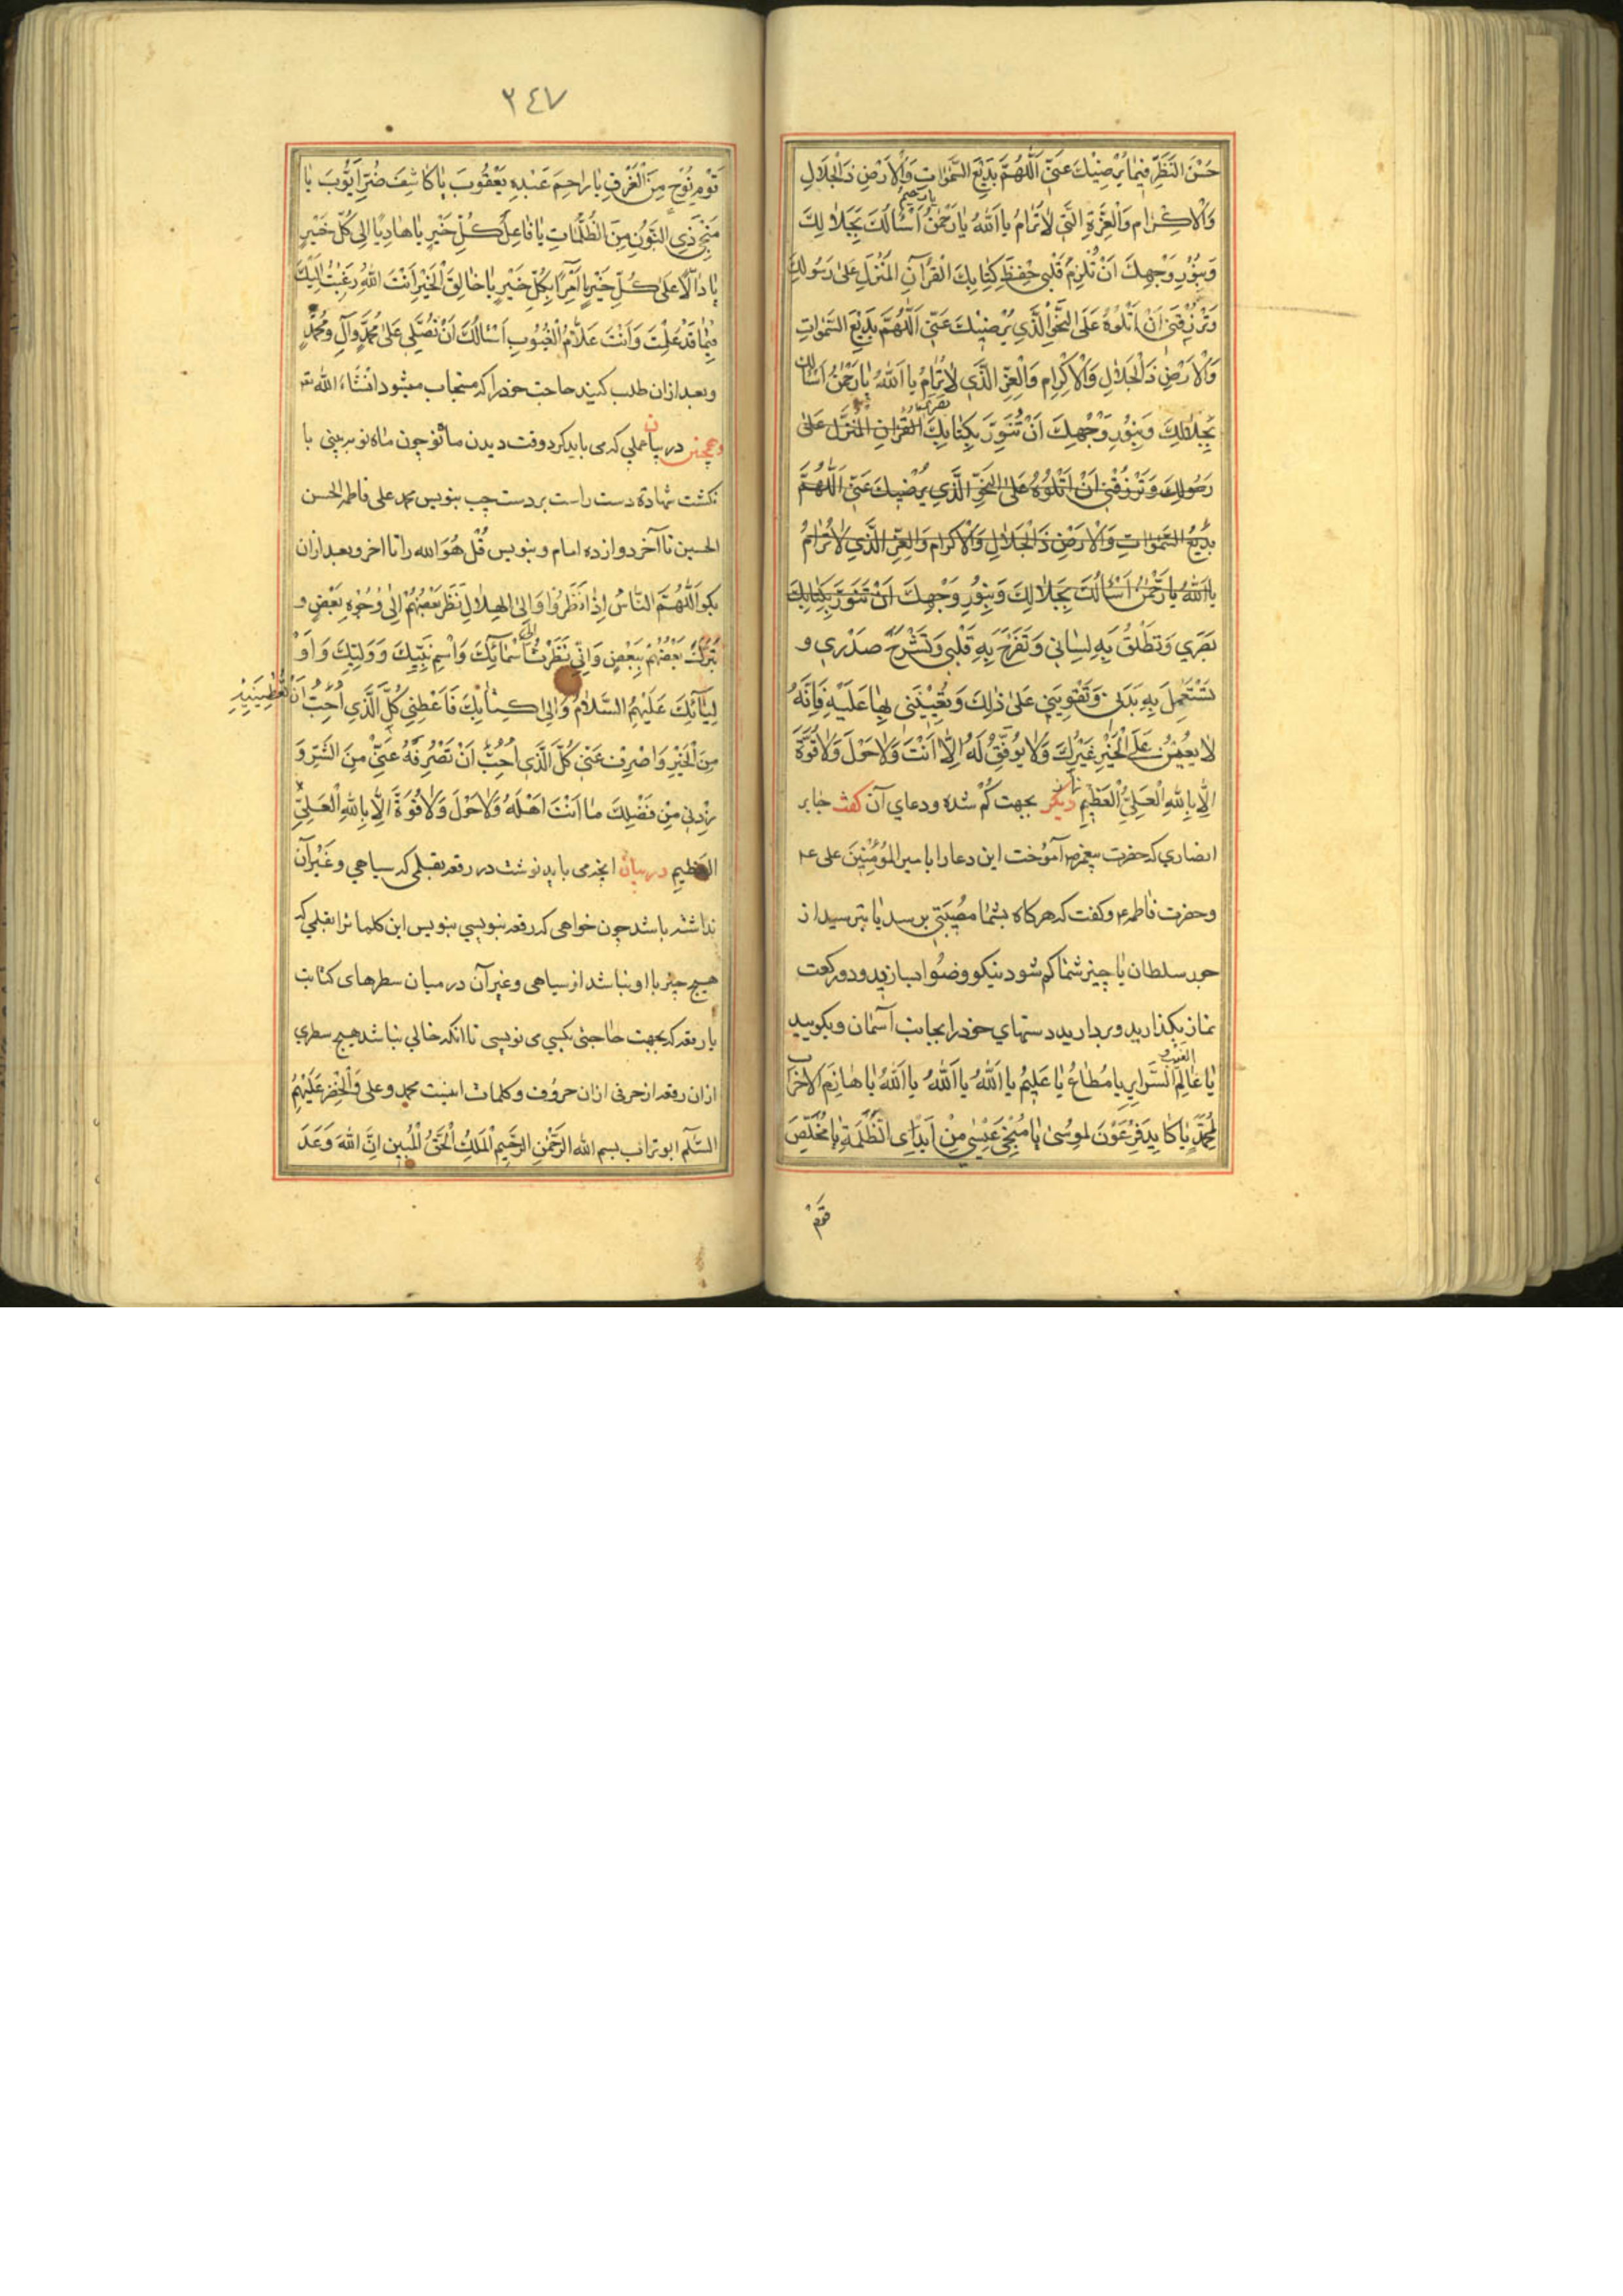 حُسْنَ النَّظَرِ فِيمَا يُرْضِيْكَ عَنِّي اَللّٰهُمَّ بَدِيْعَ السَّمٰوَاتِ وَالْاَرْضِ ذَالْجَلَالِ
وَالْاِكْرَامِ وَالْعِزَّةِ الَّتِي لَاتُرَامُ يَااَللّٰهُ يَارَحْمٰنُ يارحيم اَسْئَالُكَ بِجَلَالِكَ
وَبِنُوْرِ وَجْهِكَ اَنْ تُلْزِمَ قَلْبِي حِفْظَ كِتَابِكَ الْقُرْآنِ الْمُنْزَلِ عَلٰى رَسُولِكَ
وَتَرْزُقَنِي اَنْ اَتْلُوَهُ عَلَى النَّحْوِ الَّذِي يُرْضِيْكَ عَنِّي اَللّٰهُمَّ بَدِيْعَ السَّمٰوَاتِ
وَالْاَرْضِ ذَالْجَلَالِ وَالْاِكْرَامِ وَالْعِزِّ الَّذِي لَاتُرَامُ يَا اَللّٰهُ يَارَحْمٰنُ اَسْئَالُكَ
بِجَلَالِكَ وَبِنُوْرِ وَجْهِكَ اَنْ تُنَوِّرَ بِكِتَابِكَ الْقُرْاٰنِ الْمُنَزَّلِ عَلٰى
رَسُولِكَ وَتَرْزُقَنِي اَنْ اَتْلُوَهُ عَلَى النَّحْوِ الَّذِي يُرْضِيْكَ عَنِّي اَللّٰهُمَّ
بَدِيْعَ السَّمٰوَاتِ وَالْاَرْضِ ذَالْجَلَالِ وَالْاِكْرَامِ وَالْعِزِّ الَّذِي لَاتُرَامُ
يَااَللّٰهُ يَارَحْمٰنُ اَسْئَالُكَ بِجَلَالِكَ وَبِنُوْرِ وَجْهِكَ اَنْ تُنَوِّرَ بِكِتَابِكَ
بَصَرِي وَتُطْلِقَ بِهِ لِسَانِي وَتُفَرِّحَ بِهِ قَلْبِي وَتَشْرَحَ صَدْرِي و
تَسْتَعْمِلَ بِهِ بَدَنِي وَتُقَوِّيَنِي عَلٰى ذٰلِكَ وَتُعِيْنَنِي بِهَا عَلَيْهِ فَاِنَّهُ
لَا يُعِيْنُ عَلَى الْخَيْرِ غَيْرُكَ وَلَا يُوَفِّقُ لَهُ اِلَّا اَنْتَ وَلَاحَوْلَ وَلَاقُوَّةَ
اِلَّا بِاللّٰهِ الْعَلِيِّ الْعَظِيْمِ ديكر بجهت كُم شده ودعاي آن كفت جابر
انصاري كه حضرت پيغمبر ص آموخت اين دعا را با مير المُؤْمِنِينَ على ع
وحضرت فاطمه ع وكفت كه هركاه بشما مصيبتى برسد يا بترسيد از
جور سلطان يا چيز شما كم شود نيكو وضو بسازيد ودوركعت
نماز بكذاريد وبرداريد دستهاي خود را بجانب آسمان وبكوييد
يَا عَالِمَ الغيب والسَّرَايِرِ يَا مُطَاعُ يَا عَلِيْمُ يَا اَللّٰهُ يَا اَللّٰهُ يَا اَللّٰهُ يَا هَازِمَ الْاَحْزَابِ
لِمُحَمَّدٍ يَا كَايِدَ فِرْعَوْنَ لِمُوسٰى يَا مُنْجِيَ عِيْسٰى مِنْ اَيْدِي الظَّلَمَةِ يَا مُخَلِّصَ
قوم
٢٤٧
قَوْمِ نُوْحٍ مِنَ الْغَرَقِ يَا رَاحِمَ عَبْدِهِ يَعْقُوبَ يَا كَاشِفَ ضُرِّ اَيُّوبَ يَا
مُنْجِيَ ذِي النُّونِ مِنَ الظُّلُمَاتِ يَا فَاعِلَ كُلِّ خَيْرٍ يَا هَادِيًا اِلٰى كُلِّ خَيْرٍ
يَا دَالًّا عَلٰى كُلِّ خَيْرٍ يَا آمِرًا بِكُلِّ خَيْرٍ يَا خَالِقَ الْخَيْرِ اَنْتَ اللّٰهُ رَغِبْتُ اِلَيْكَ
فِيْمَا قَدْ عَلِمْتَ وَاَنْتَ عَلَّامُ الْغُيُوبِ اَسْئَالُكَ اَنْ تُصَلِّيَ عَلٰى مُحَمَّدٍ وَآلِ مُحَمَّدٍ
وبعد ازان طلب كنيد حاجت خود را كه مستجاب ميشود انْشَاءَ الله تع
وهمچنين در بيان عملي كه مى بايد كرد وقت ديدن ماه نو چون ماه نو ببيني با
نكشت شهادة دست راست بر دست چپ بنويس محمد على فاطمه الحسن
الحسين تا آخر دوازده امام وبنويس قُلْ هُوَ الله را تا اخر وبعد ازان
بكو اَللّٰهُمَّ النَّاسُ اِذَا نَظَرُوا اِلَى الْهِلَالِ نَظَرَ بَعْضُهُمْ اِلٰى وُجُوْهِ بَعْضٍ و
تَبَرَّكَ بَعْضُهُمْ بِبَعْضٍ وَاِنِّي نَظَرْتُ الى اَسْمَائِكَ وَاسْمِ نَبِيِّكَ وَوَلِيِّكَ وَاَوْ
لِيَآئِكَ عَلَيْهِمُ السَّلَامُ وَاِلٰى كِتَابِكَ فَاَعْطِنِي كُلَّ الَّذِي اُحِبُّ اَنْ تُعْطِيَنِيْهِ
مِنَ الْخَيْرِ وَاصْرِفْ عَنِّي كُلَّ الَّذِي اُحِبُّ اَنْ تَصْرِفَهُ عَنِّي مِنَ الشَّرِّ وَ
زِدْنِي مِنْ فَضْلِكَ مَا اَنْتَ اَهْلُهُ وَلَاحَوْلَ وَلَاقُوَّةَ اِلَّا بِاللّٰهِ الْعَلِيِّ
العَظِيمِ در بيان انچه مى بايد نوشت در رقعه بقلمى كه سياهي وغَيْر آن
نداشته باشد چون خواهى كه رقعه بنويسي بنويس اين كلما ترا بقلمي كه
هيچ چيز با او نباشد از سياهى وغير آن در ميان سطرهاى كتابت
يا رقعه كه بجهت حاجتى بكسي مى نويسى تا انكه خالي نباشد هيچ سطري
ازان رقعه از حرفى ازان حروف وكلمات اينست محمد وعلى وَالْخِضر عَلَيْهِمُ
السَّلَم ابو تراب بسم الله الرَّحْمٰنِ الرَّحِيْمِ الْمَلِكُ الْحَقُّ الْمُبِين اِنَّ اللّٰهَ وَعَدَ